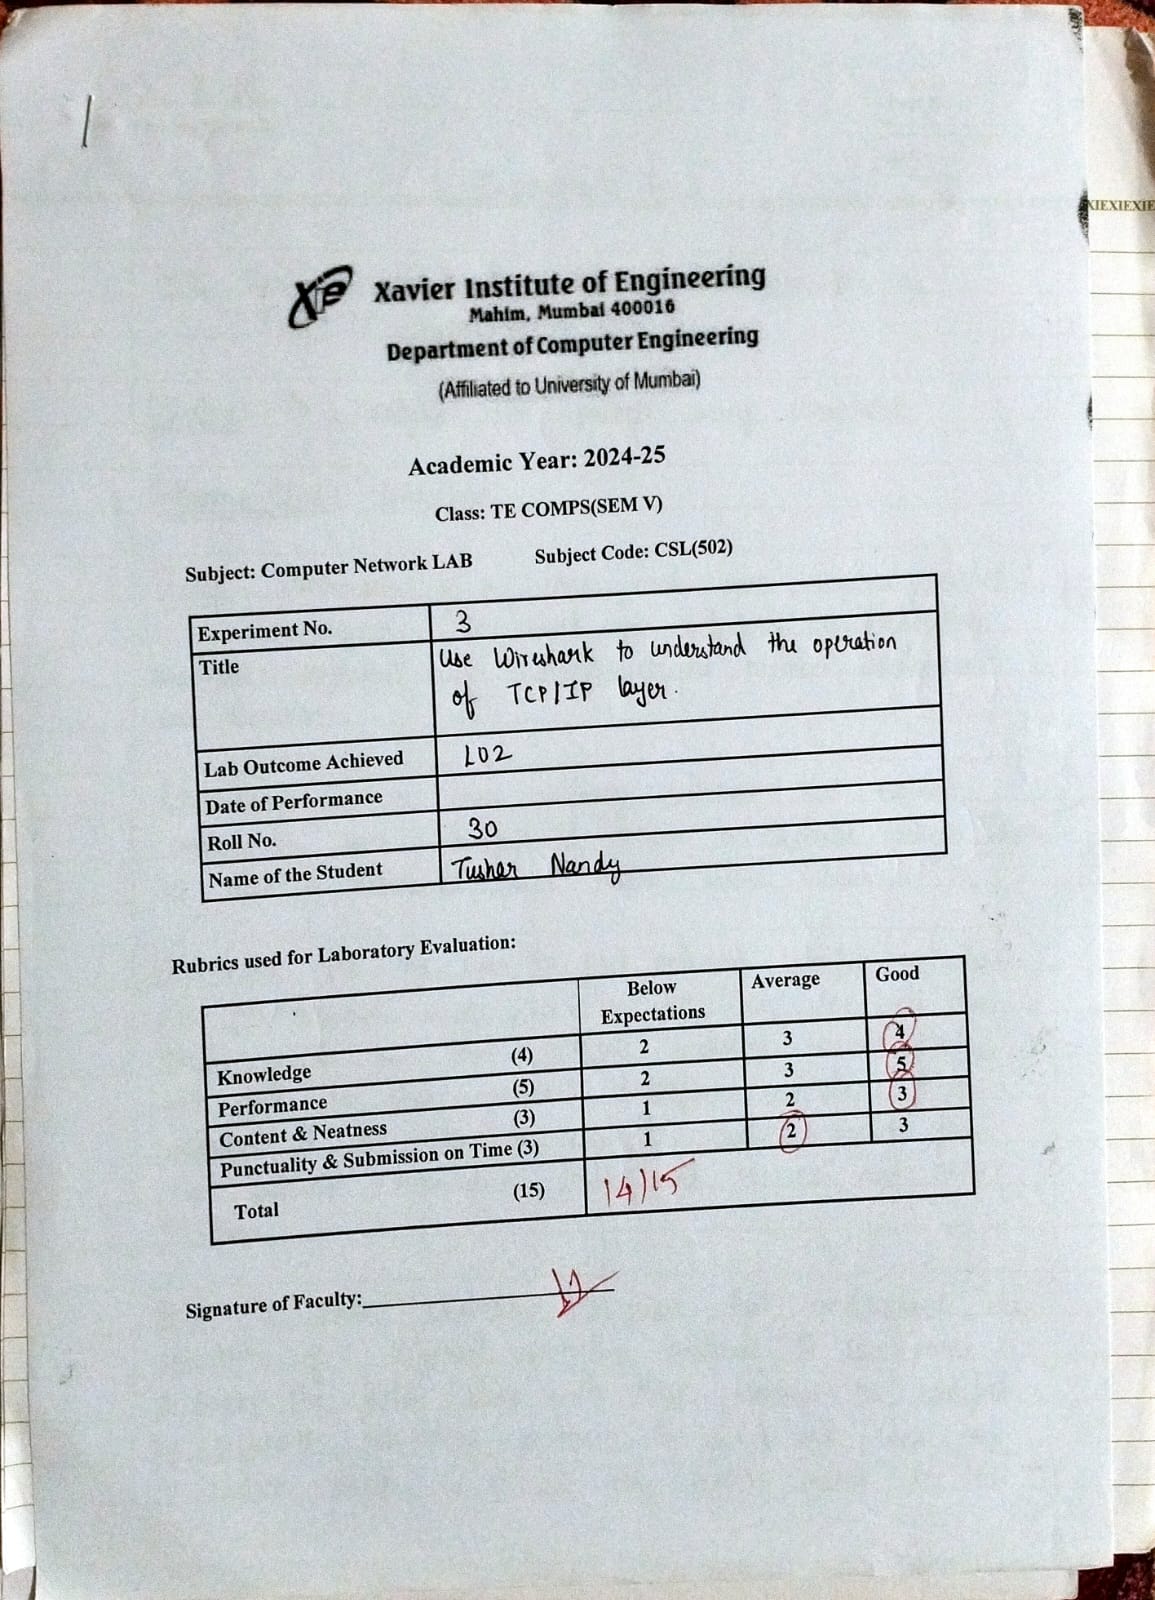 XIEXIEXIE
Xie Xavier Institute of Engineering
Mahim, Mumbai 400016
Department of Computer Engineering
(Affiliated to University of Mumbai)
Academic Year: 2024-25
Class: TE COMPS(SEM V)
Subject: Computer Network LAB Subject Code: CSL(502)
Experiment No. 3
Title Use Wireshark to understand the operation
of TCP/IP layer.
Lab Outcome Achieved LO2
Date of Performance
Roll No. 30
Name of the Student Tushar Nandy
Rubrics used for Laboratory Evaluation:
Below Expectations Average Good
Knowledge (4) 2 3 4
Performance (5) 2 3 5
Content & Neatness (3) 1 2 3
Punctuality & Submission on Time (3) 1 2 3
Total (15) 14/15
Signature of Faculty: